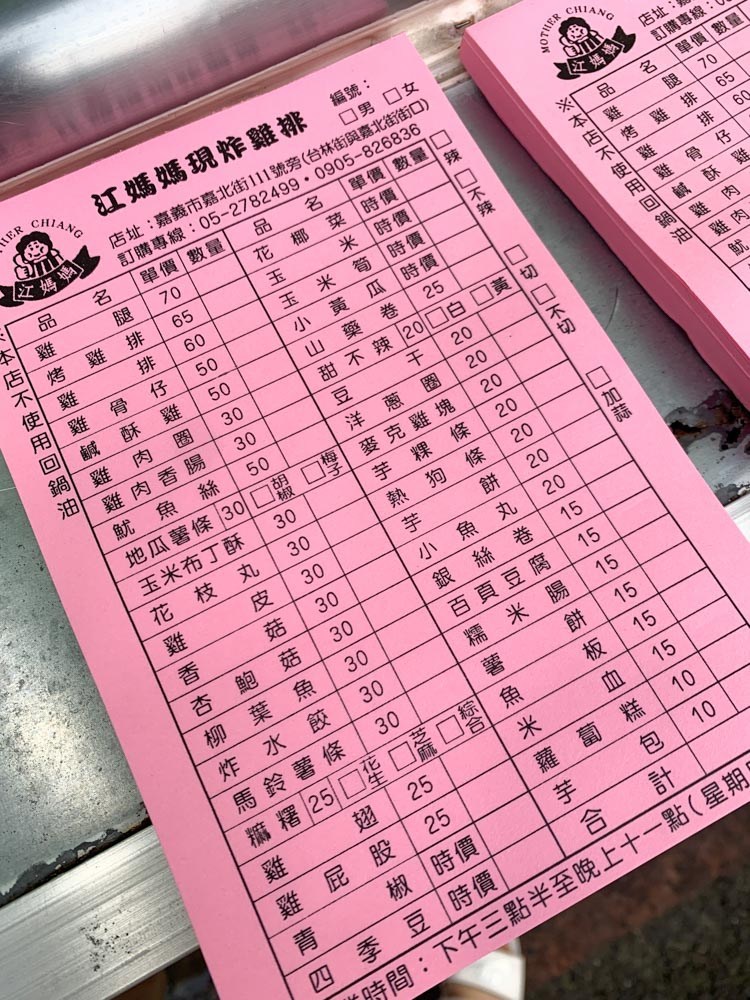 江媽媽現炸雞排
編號：
□男 □女
店址：嘉義市嘉北街111號旁(台林街與嘉北街街口)
訂購專線：05-2782499・0905-826836
MOTHER CHIANG
江媽媽
※本店不使用回鍋油
品名 單價 數量
雞腿 70
烤雞排 65
雞排 60
雞骨仔 50
鹹酥雞 50
雞肉圈 30
雞肉香腸 30
魷魚絲 50
地瓜薯條 30 □胡椒 □梅子
玉米布丁酥 30
花枝丸 30
雞皮 30
香菇 30
杏鮑菇 30
柳葉魚 30
炸水餃 30
馬鈴薯條 30
麻糬 25 □花生 □芝麻 □綜合
雞翅 25
雞屁股 25
青椒 時價
四季豆 時價
品名 單價 數量
花椰菜 時價
玉米 時價
玉米筍 時價
小黃瓜 時價
山藥卷 25
甜不辣 20 □白 □黃
豆干 20
洋蔥圈 20
麥克雞塊 20
芋粿條 20
熱狗條 20
芋餅 20
小魚丸 20
銀絲卷 15
百頁豆腐 15
糯米腸 15
薯餅 15
魚板 15
米血 15
蘿蔔糕 10
芋包 10
合計
□辣 □不辣 □切 □不切 □加蒜
時間：下午三點半至晚上十一點(星期
MOTHER CHIANG
江媽媽
店址：嘉
訂購專線：0
※本店不使用回鍋油
品名 單價 數量
雞腿 70
烤雞排 65
雞排 60
雞骨仔
鹹酥雞
雞肉
雞肉
魷